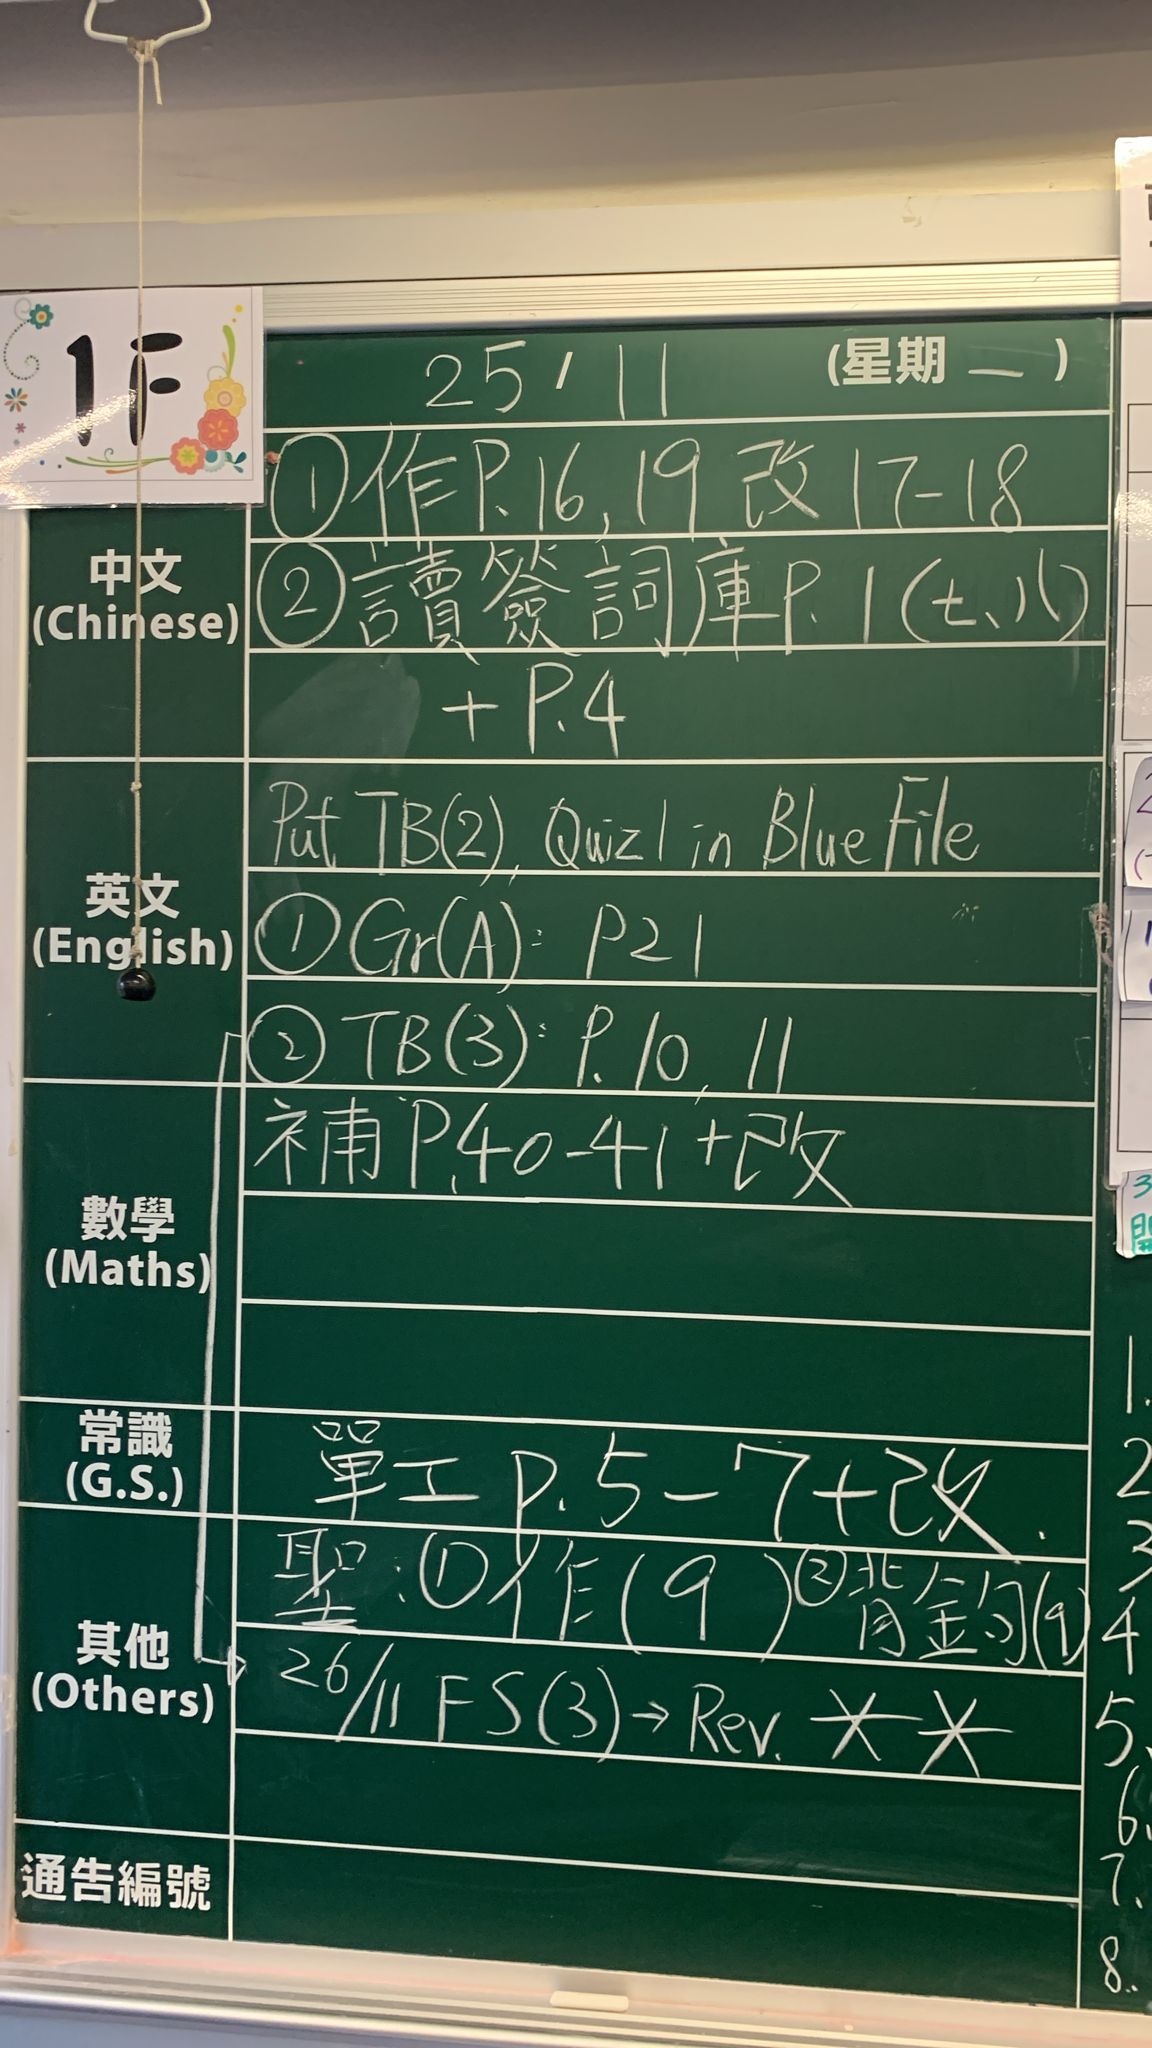 1F
25/11 (星期一)
中文
(Chinese)
①作P.16,19 改17-18
②讀簽詞庫P.1(七、八)
+P.4
英文
(English)
Put TB(2), Quiz1 in Blue File
①Gr(A): P21
②TB(3): P.10, 11
數學
(Maths)
補P.40-41+改
常識
(G.S.)
單工P.5-7+改.
其他
(Others)
聖:①作(9)②背金句(9)
26/11 FS(3)→Rev. **
通告編號
1.
2
3
4
5.
6.
7.
8.